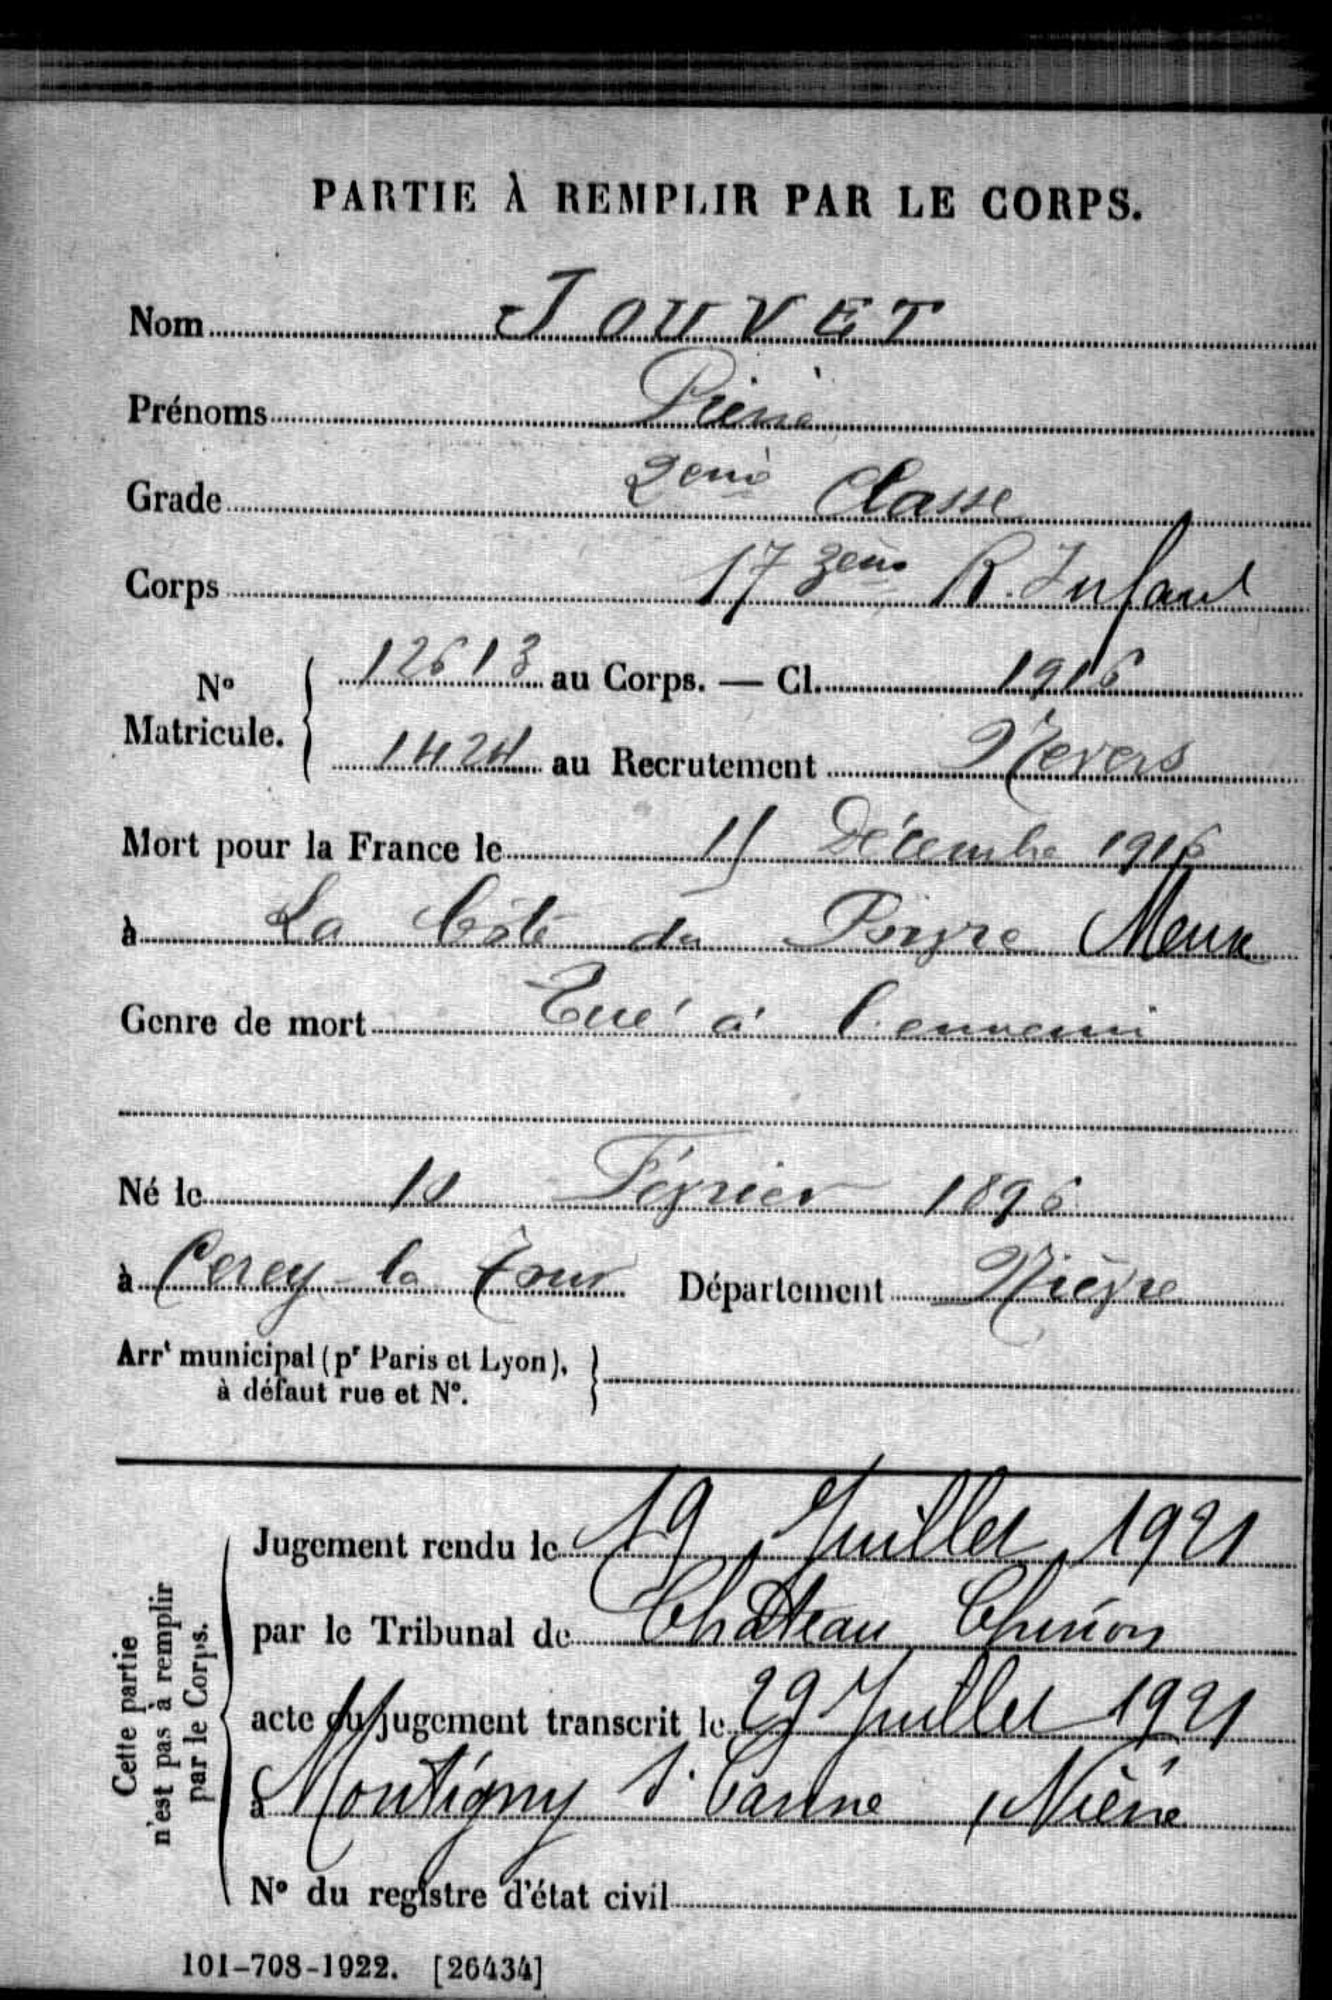 PARTIE À REMPLIR PAR LE CORPS.
Nom JOUVET
Prénoms Pierre
Grade 2eme Classe
Corps 173eme R. Infant
No Matricule. 12613 au Corps. — Cl. 1916
1424 au Recrutement Nevers
Mort pour la France le 15 Décembre 1916
à La Côte du Poivre Meuse
Genre de mort Tué à l'ennemi
Né le Février 1896
à Cercy la Tour Département Nièvre
Arrt municipal (pr Paris et Lyon),
à défaut rue et No.
Cette partie
n'est pas à remplir
par le Corps.
Jugement rendu le 19 Juillet 1921
par le Tribunal de Château Chinon
acte ou jugement transcrit le 29 Juillet 1921
à Montigny s. Canne, Nièvre
No du registre d'état civil
101-708-1922. [26434]